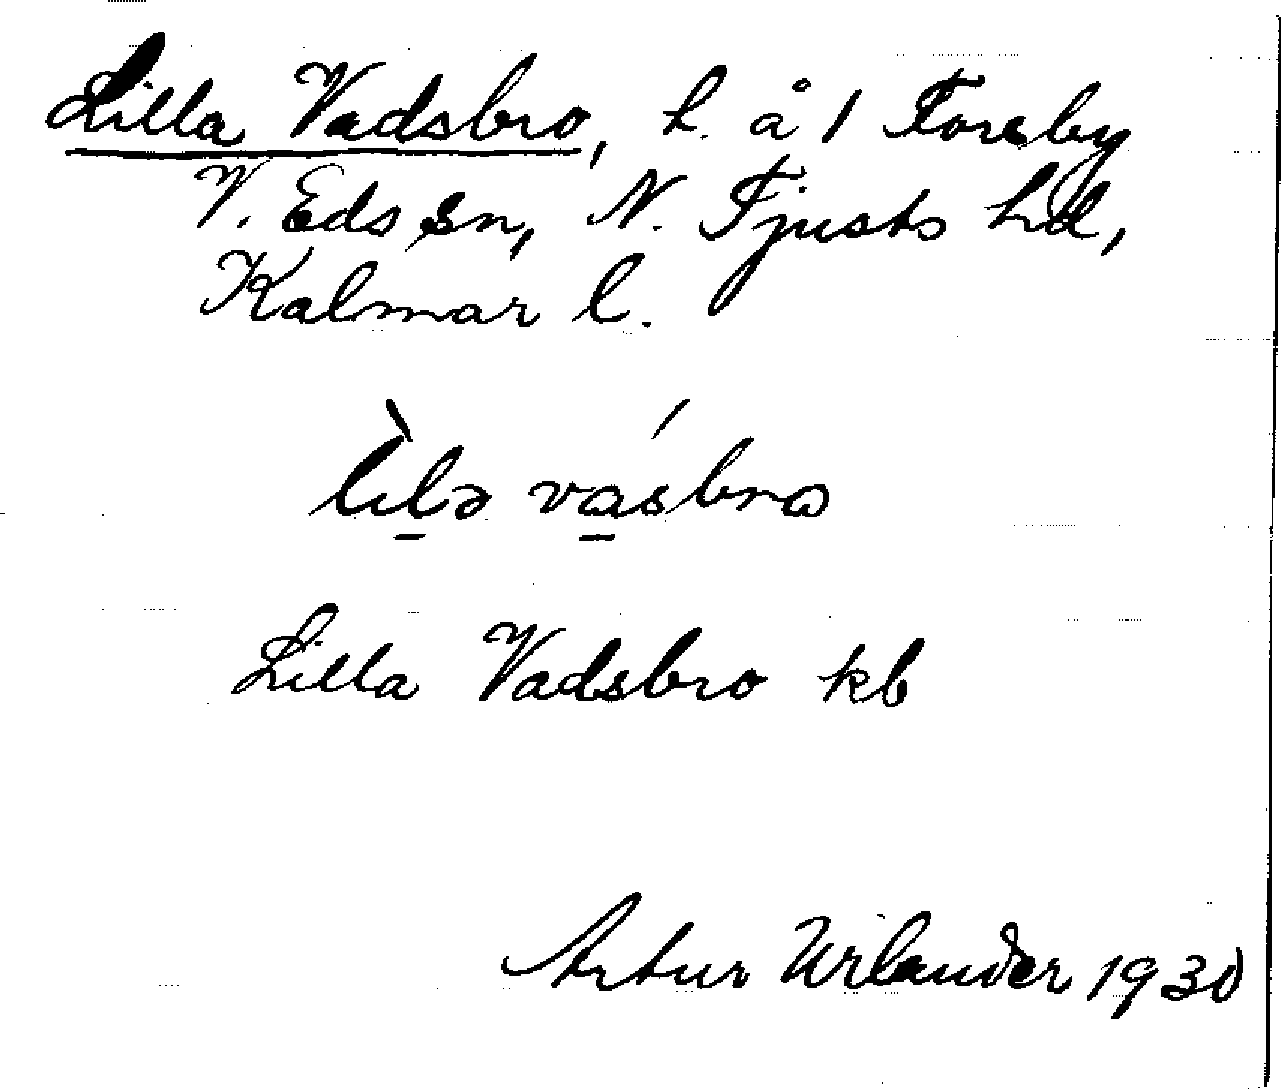 Lilla Vadsbro, h. å 1 Toreby
V. Eds sn, N. Tjusts hd,
Kalmar l.
lìlə vásbrω
Lilla Vadsbro kb
Artur Urlander 1930